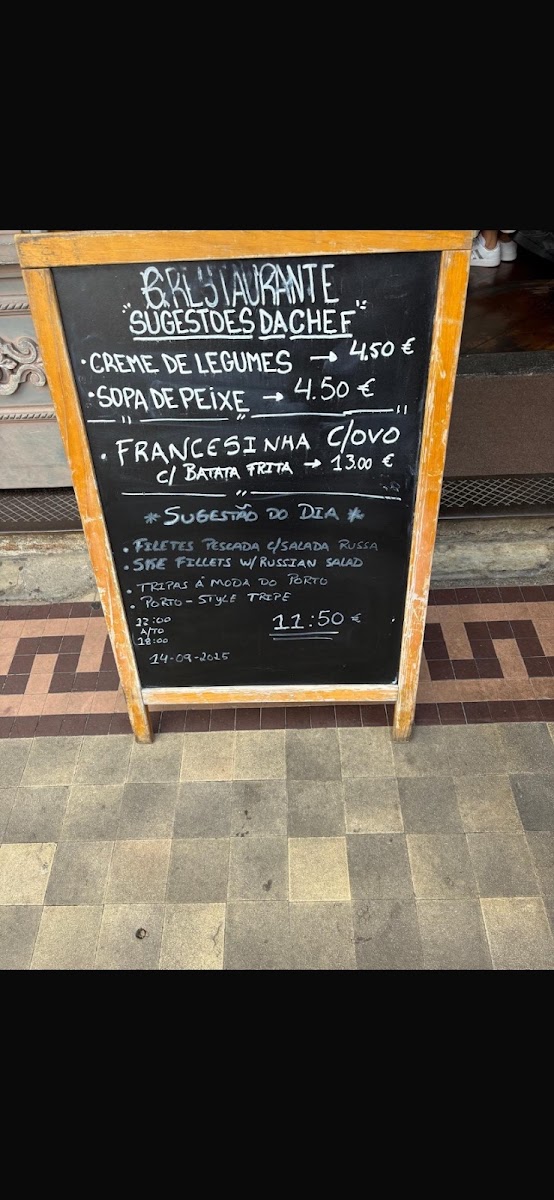 B.RESTAURANTE
"SUGESTOES DA CHEF"
• CREME DE LEGUMES → 4,50 €
• SOPA DE PEIXE → 4.50 €
• FRANCESINHA C/OVO
C/ BATATA FRITA → 13.00 €
* SUGESTÃO DO DIA *
• FILETES PESCADA C/SALADA RUSSA
• FILLETS W/RUSSIAN SALAD
• TRIPAS Á MODA DO PORTO
• PORTO-STYLE TRIPE
12:00
A/TO
18:00
11:50 €
14-09-2025